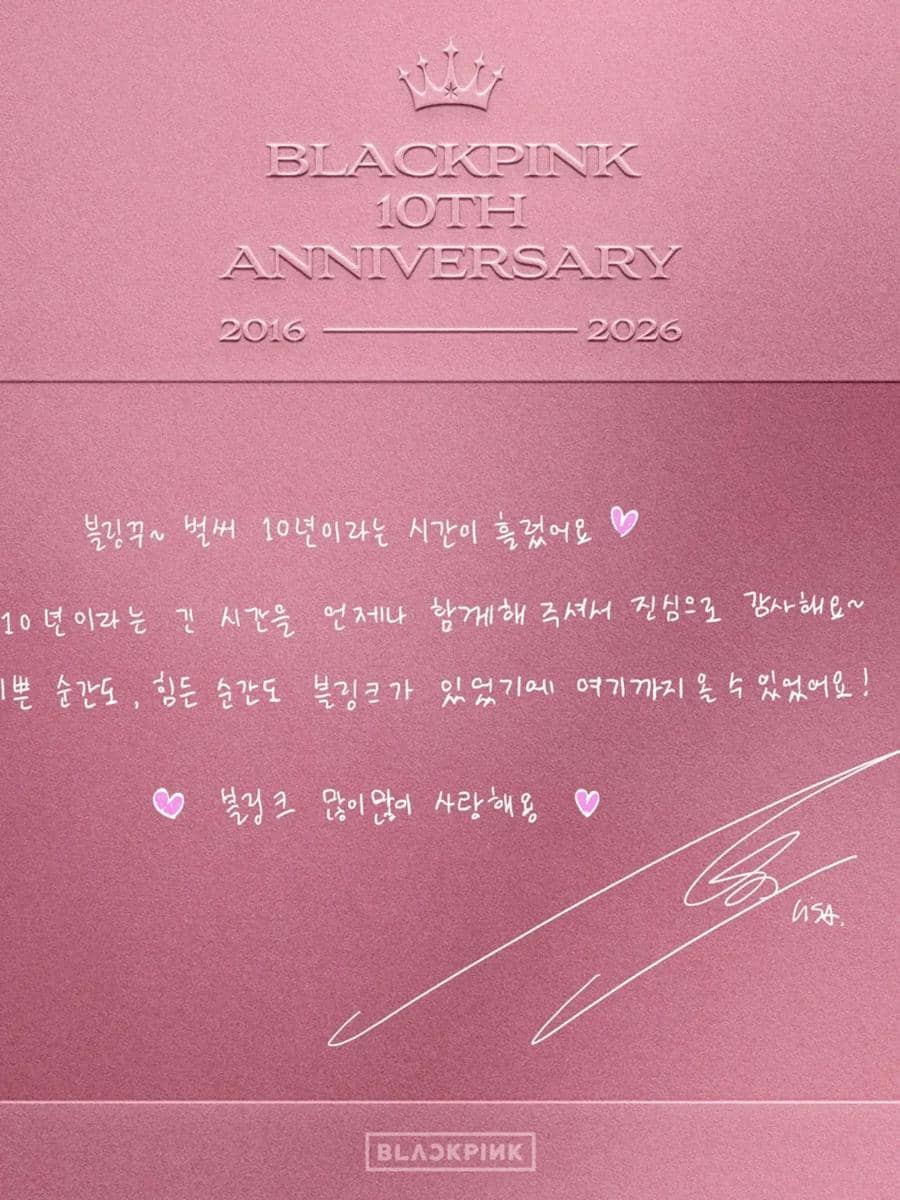 BLACKPINK
10TH
ANNIVERSARY
2016 2026
블링꾸~ 벌써 10년이라는 시간이 흘렀어요
10년이라는 긴 시간을 언제나 함께해 주셔서 진심으로 감사해요~
쁜 순간도, 힘든 순간도 블링크가 있었기에 여기까지 올 수 있었어요!
블링크 많이많이 사랑해용
BLACKPINK